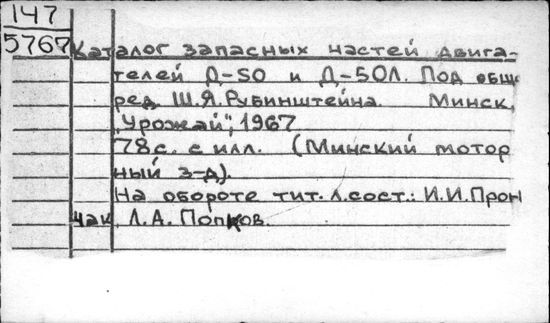 147
5767
Каталог запасных частей двига-
телей Д-50 и Д-50Л. Под общ
ред. Ш.Я.Рубинштейна. Минск,
"Урожай", 1967
78с. с илл. (Минский мотор
ный з-д).
На обороте тит. л.сост.: И.И.Прон
чак, Л.А. Попков.